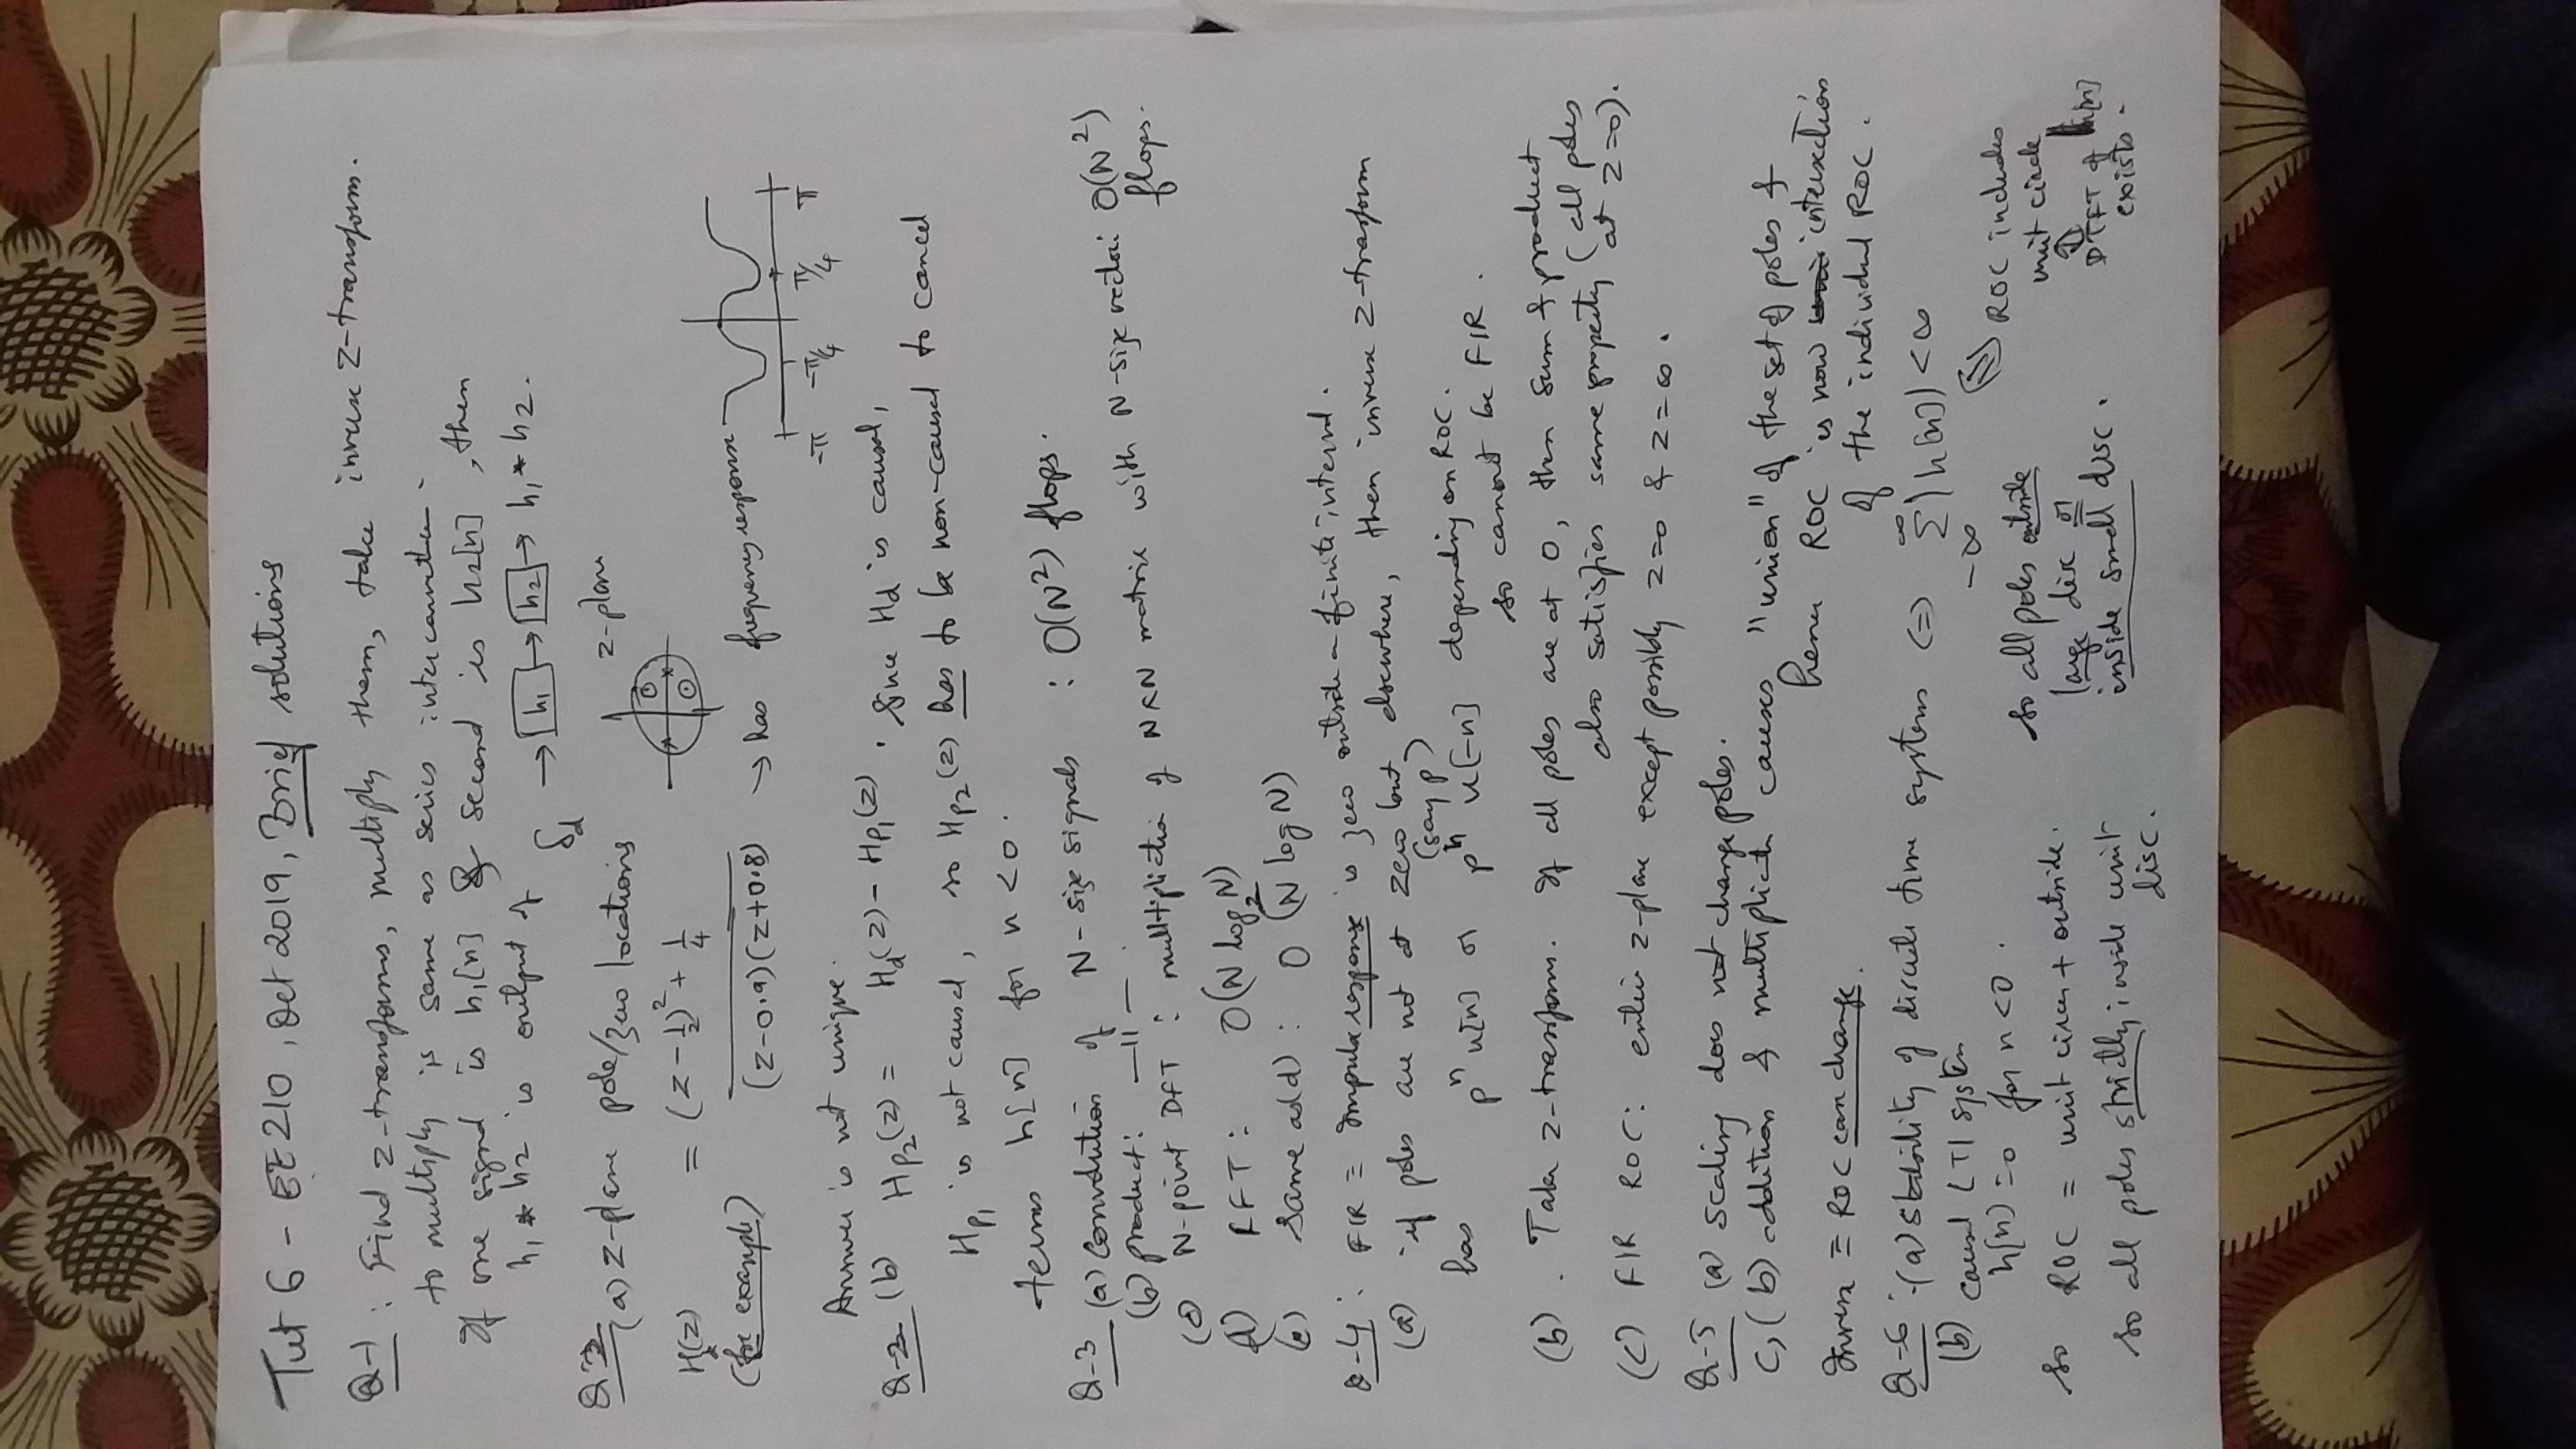 Tut 6 - EE 210, Oct 2019, Brief solutions
Q-1 : Find z-transforms, multiply them, take inverse z-transform.
to multiply is same as series interconnection.
If one signal is h1[n] & second is h2[n], then
h1 * h2 is output of δd → h1 → h2 → h1 * h2.
Q-2 (a) z-plane pole/zero locations z-plane
Hd(z) = (z - 1/2)² + 1/4
(for example) (z-0.9)(z+0.8) → has frequency response
-π -π/4 π/4 π
Answer is not unique.
Q-2 (b) Hp2(z) = Hd(z) - Hp1(z). Since Hd is causal,
Hp1 is not causal, so Hp2(z) has to be non-causal to cancel
terms h[n] for n<0.
Q-3 (a) Convolution of N-size signals : O(N²) flops.
(b) product: —11—
(c) N-point DFT: multiplication of NxN matrix with N-size vector: O(N²) flops.
(d) FFT: O(N log2 N)
(e) same as d): O(N log N)
Q-4: FIR = Impulse response is zero outside a finite interval.
(a) if poles are not at zero but elsewhere, then inverse z-transform
(say p)
has pⁿ u[n] or pⁿ u[-n] depending on ROC.
so cannot be FIR.
(b). Take z-transform. If all poles are at 0, then sum & product
also satisfies same property (all poles at z=0).
(c) FIR ROC: entire z-plane except possibly z=0 & z=∞.
Q-5 (a) scaling does not change poles.
c, (b) addition & multiplication causes "union" of the set of poles &
hence ROC is now intersection
of the individual ROC.
Inverse = ROC can change.
Q-6 : (a) stability of discrete time systems ⇔ ∞ Σ -∞ |h[n]| < ∞
(b) causal LTI system
h[n] = 0 for n<0.
⇕ ROC includes unit circle
⇕
DTFT of h[n] exists.
so ROC = unit circum + outside.
so all poles outside large disc or
inside small disc.
so all poles strictly inside unit disc.